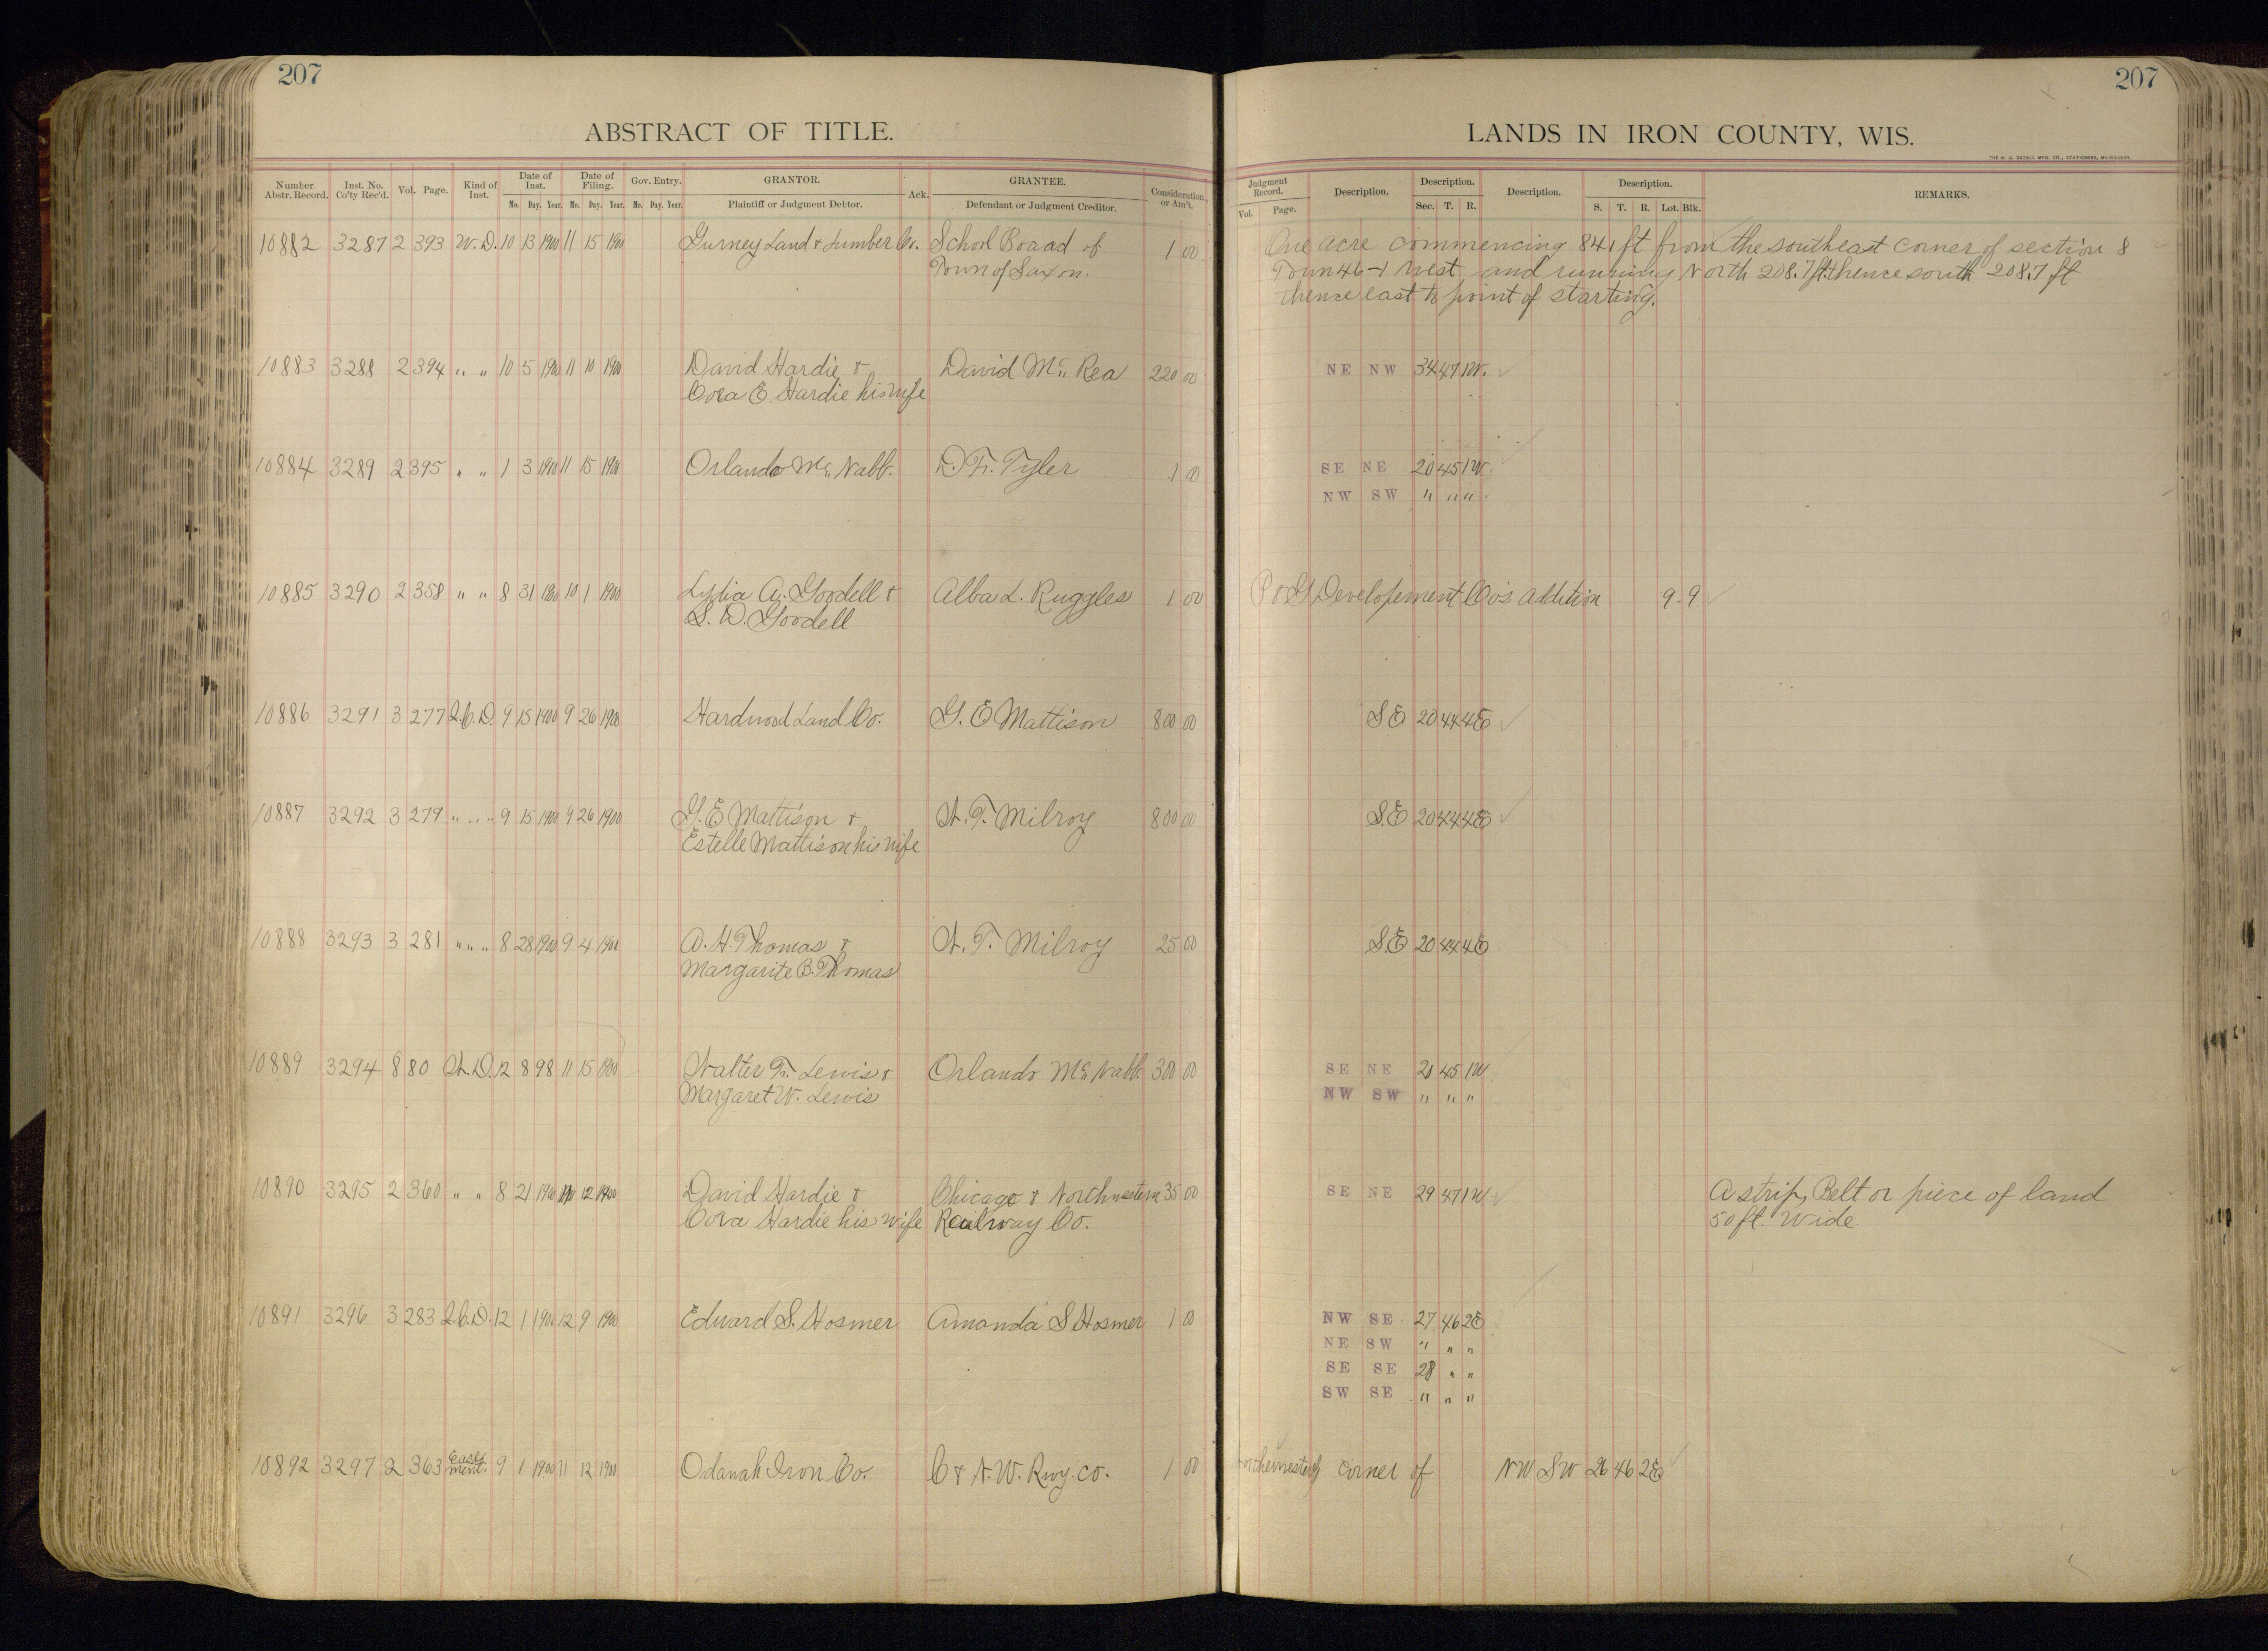 207
207
ABSTRACT OF TITLE.
LANDS IN IRON COUNTY, WIS.
Number Abstr. Record. Inst. No. Co'ty Rec'd. Vol. Page. Kind of Inst. Date of Inst. Mo. Day. Year. Date of Filing. Mo. Day. Year. Gov. Entry. Mo. Day. Year. GRANTOR. Plaintiff or Judgment Debtor. Ack. GRANTEE. Defendant or Judgment Creditor. Consideration or Am't.
Judgment Record. Vol. Page. Description. Description. Sec. T. R. Description. Description. S. T. R. Lot. Blk. REMARKS.
10882 3287 2 393 W.D. 10 13 1900 11 15 1900 Gurney Land & Lumber Co. School Boaad of 1 00 One acre commencing 841 ft from the southeast corner of section 8
Town of Saxon. Town 46-1 West and running North 208.7 ft thence south 208.7 ft
thence east to point of starting.
10883 3288 2 394 " " 10 5 1900 11 10 1900 David Hardie & David Mc Rea 220 00 NE NW 34 47 1W.
Cora E. Hardie his wife
10884 3289 2 395 " " 1 3 1900 11 15 1900 Orlando Mc Nabb. D. F. Tyler 1 00 SE NE 20 45 1W.
NW SW " " "
10885 3290 2 358 " " 8 31 1900 10 1 1900 Lydia A. Goodell & Alba L. Ruggles 1 00 P & G Developement Co's addition 9 9
S. D. Goodell
10886 3291 3 277 Q.C.D. 9 15 1900 9 26 1900 Hardwood Land Co. G. E Mattison 800 00 SE 20 44 4E
10887 3292 3 279 " " " 9 15 1900 9 26 1900 G. E Mattison & W. T. Milroy 800 00 S.E 20 44 4E
Estelle Mattison his wife
10888 3293 3 281 " " " 8 28 1900 9 4 1900 A. H. Thomas & W. T. Milroy 25 00 S.E 20 44 4E
Margarite B. Thomas
10889 3294 8 80 W.D. 12 8 98 11 15 1900 Walter F. Lewis & Orlando Mc Nabb. 300 00 SE NE 20 45 1W
Margaret W. Lewis NW SW " " "
10890 3295 2 360 " " 8 21 1900 12 1900 David Hardie & Chicago & Northwestern 35 00 SE NE 29 47 1W A strip, Belt or piece of land
Cora Hardie his wife Railway Co. 50 ft. wide.
10891 3296 3 283 Q.C.D. 12 1 1900 12 9 1900 Edward S. Hosmer Amanda S Hosmer 1 00 NW SE 27 46 2E
NE SW " " "
SE SE 28 " "
SW SE " " "
10892 3297 2 363 Easement. 9 1 1900 11 12 1900 Odanah Iron Co. C & N.W. Rwy. Co. 1 00 corner of NW SW 26 46 2E